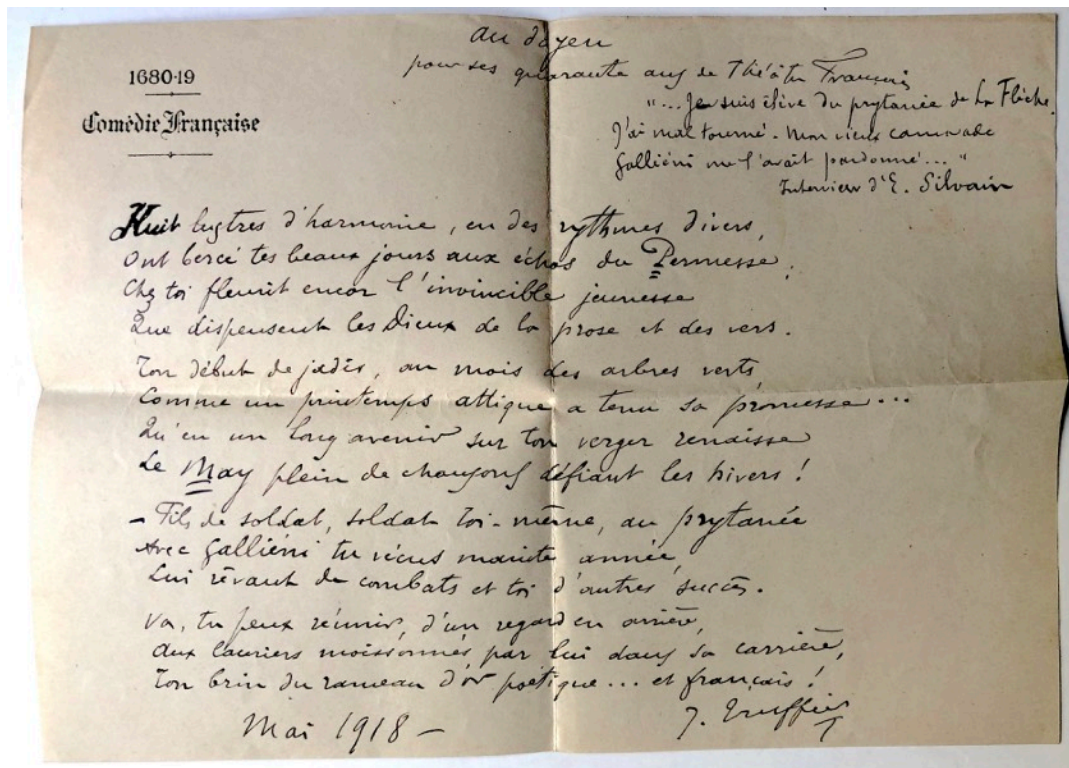 1680-19
Comédie Française
Au doyen
pour ses quarante ans de Théâtre Français
"... Je suis élève du prytanée de La Flèche.
J'ai mal tourné. Mon vieux camarade
Galliéni me l'avait pardonné... "
Interview d'E. Silvain
Huit lustres d'harmonie, en des rythmes divers,
Ont bercé tes beaux jours aux échos du Permesse ;
Chez toi fleurit encor l'invincible jeunesse
Que dispensent les Dieux de la prose et des vers.
Ton début de jadis, au mois des arbres verts,
Comme un printemps attique a tenu sa promesse...
Qu'en un long avenir sur ton verger renaisse
Le May plein de chansons défiant les hivers !
- Fils de soldat, soldat toi-même, au prytanée
Avec Galliéni tu vécus mainte année,
Lui rêvant de combats et toi d'autres succès.
Va, tu peux réunir, d'un regard en arrière,
Aux lauriers moissonnés par lui dans sa carrière,
Ton brin du rameau d'or poétique... et français !
Mai 1918 -
J. Truffier